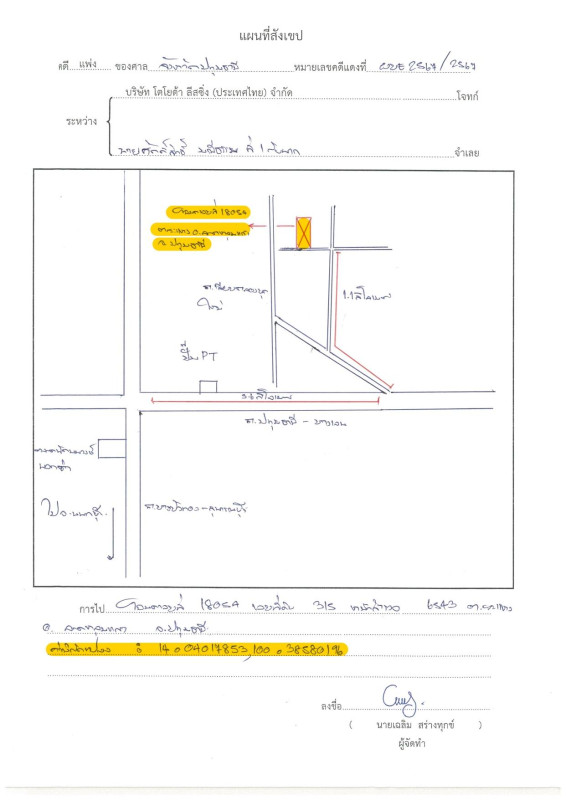 แผนที่สังเขป
คดี แพ่ง ของศาล จังหวัดปทุมธานี หมายเลขคดีแดงที่
บริษัท โตโยต้า ลีสซิ่ง (ประเทศไทย) จำกัด โจทก์
ระหว่าง
จำเลย
จ.ปทุมธานี
ใหม่
1.1 กิโลเมตร
ปั๊ม PT
5.6 กิโลเมตร
ถ.ปทุมธานี - บางเลน
ถ.บางบัวทอง-สุพรรณบุรี
ไป จ.นนทบุรี
การไป โฉนดเลขที่ 18054 เลขที่ดิน 315 หน้าสำรวจ 6543
อ. ลาดหลุมแก้ว จ.ปทุมธานี
14.04017853,100.38580196
ลงชื่อ
( นายเฉลิม สร่างทุกข์ )
ผู้จัดทำ